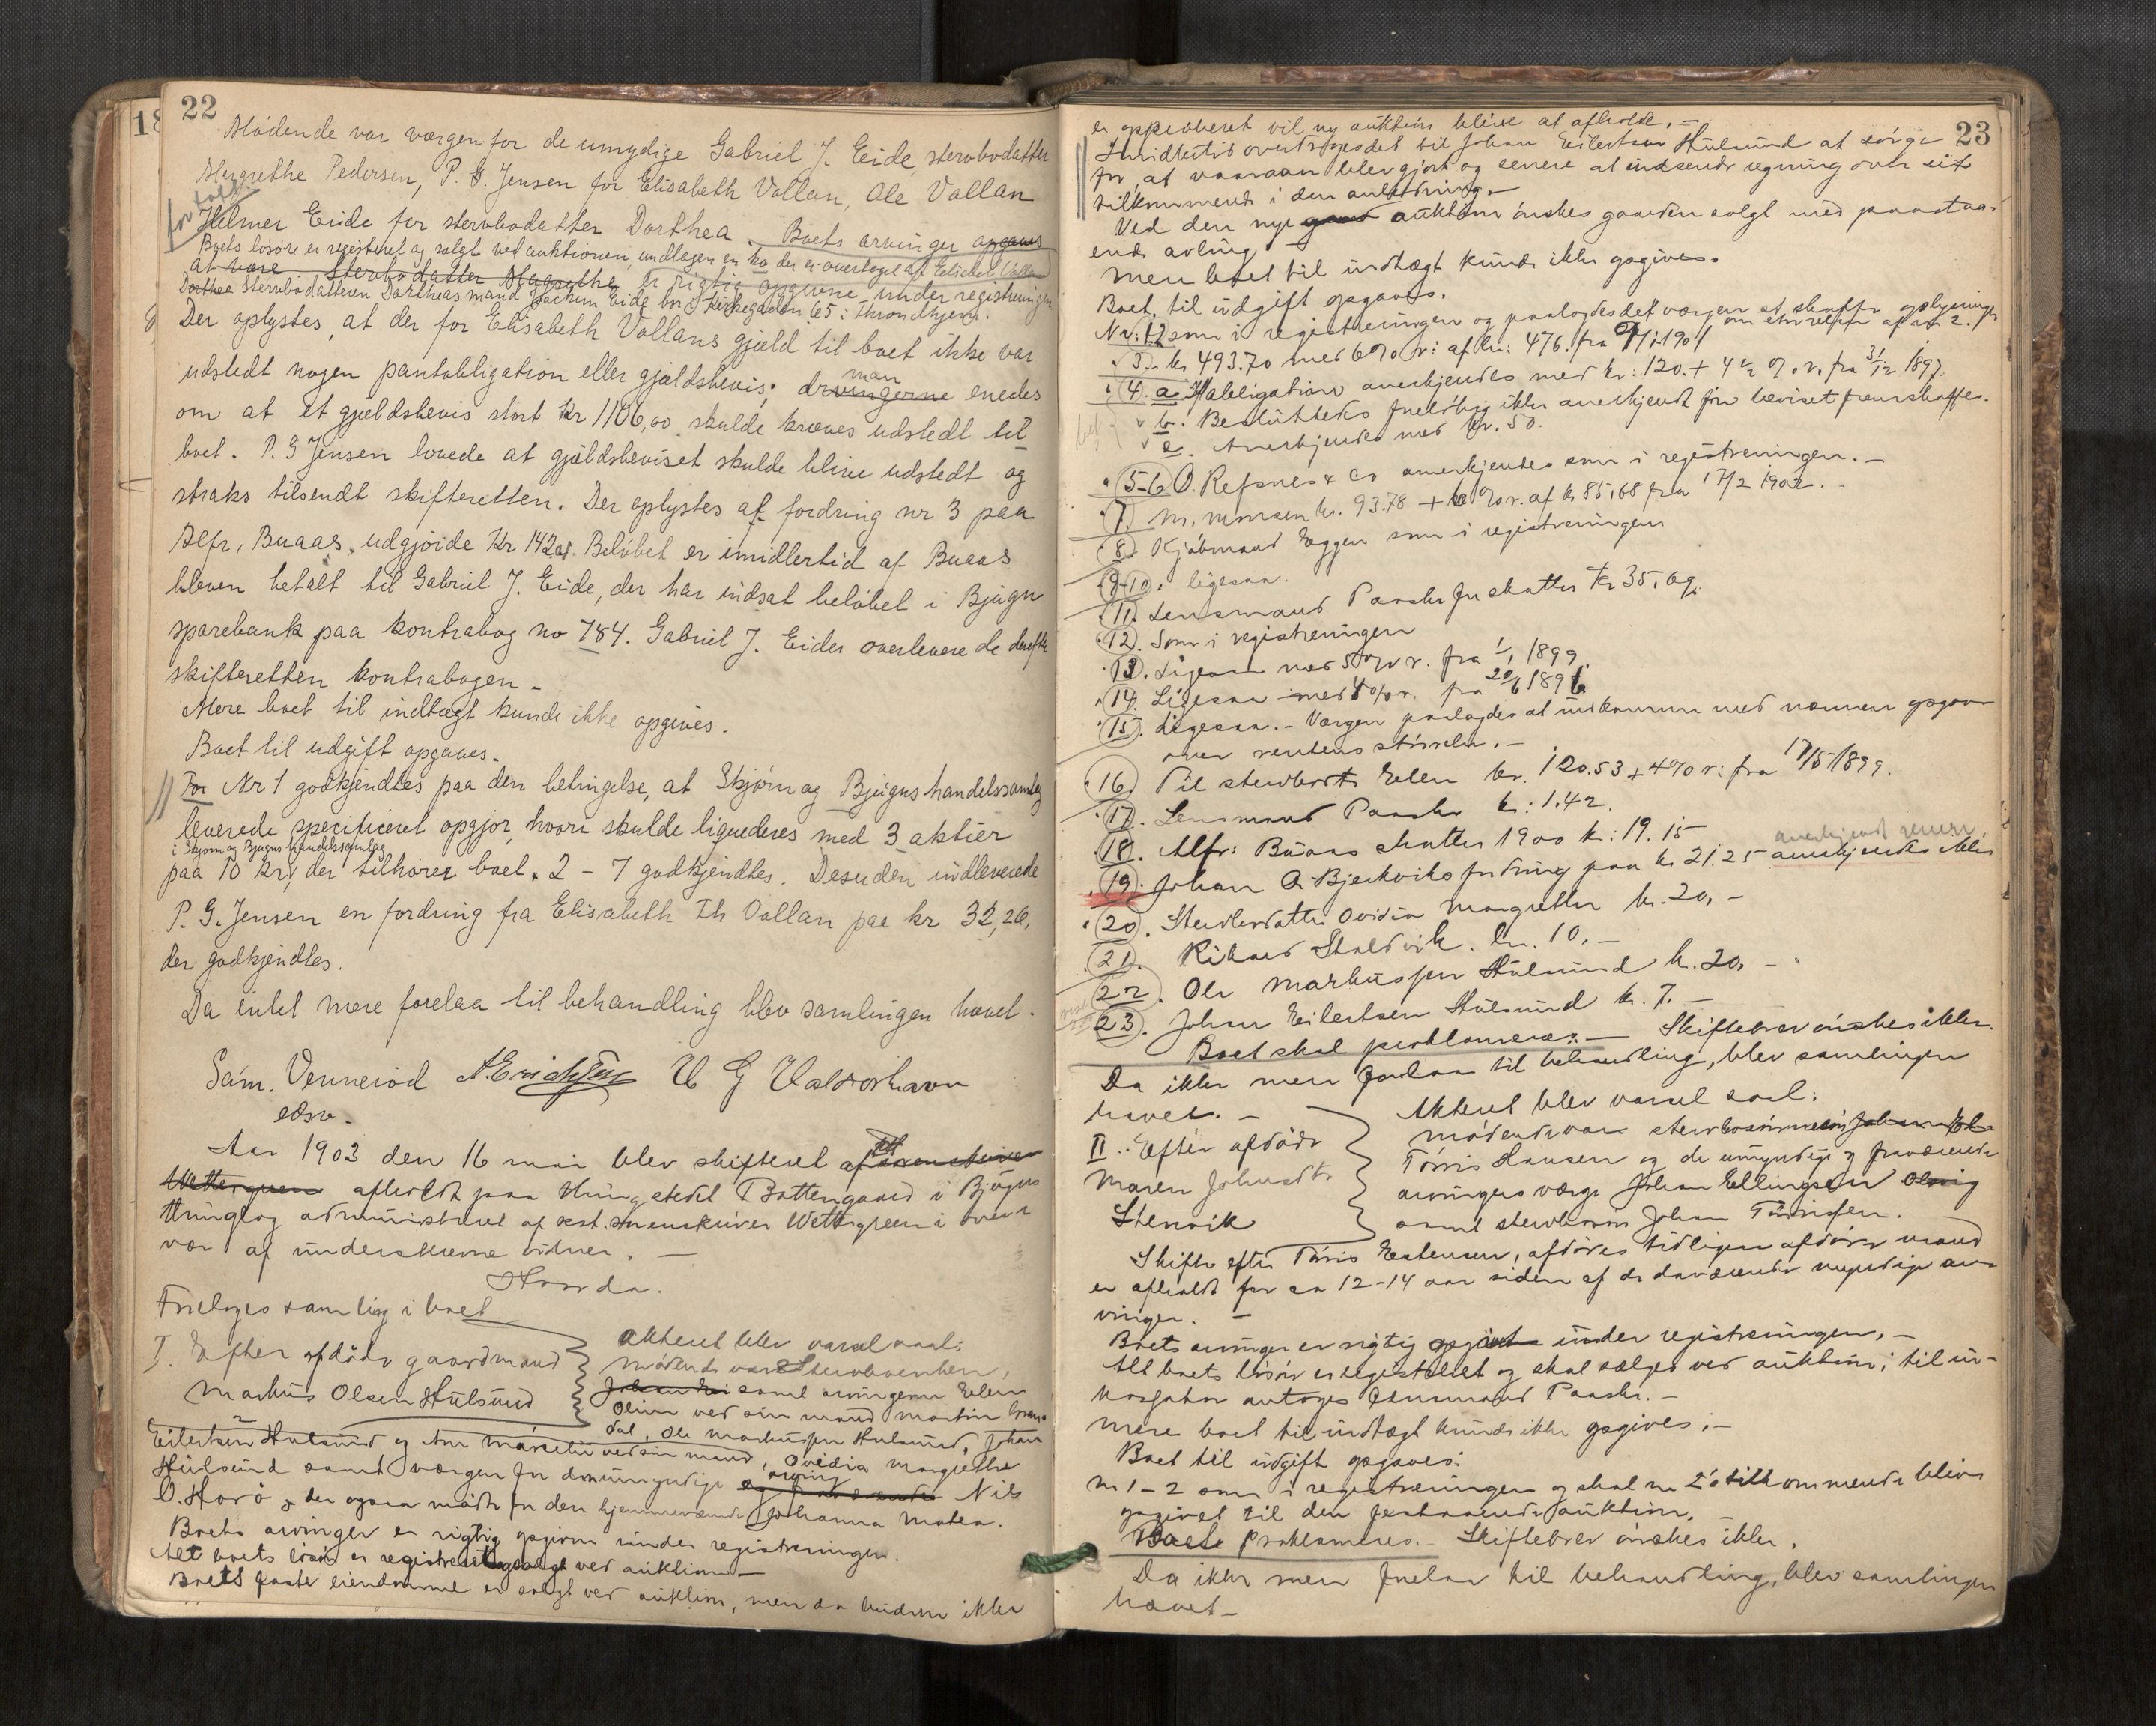 22
Mødende var værgen for de umydige Gabriel J. Eide, stervbodatter
Margrethe Pedersen, P. G. Jensen for Elisabeth Vollan, Ole Vollan
for [
Helmer Eide for stervbodatter Dorthea. Boets arvinger opgaves
Boets løsøre er registreret og solgt ved auktionen, undtagen en ko der er overtaget af Enkel Vollan
at være Stervbodatter Margrethe er rigtig opgivne under registreringen
Dorthea Stervbodatteren Dortheas mand Joakim Eide bor i Kirkegaden 65 i Throndhjem.
Der oplystes, at der for Elisabeth Vollans gjæld til boet ikke var
udstedt nogen pantobligation eller gjældsbevis; man
arvingerne enedes
om at et gjældsbevis stort Kr 1106,00 skulde kræves udstedt til
boet. P. G Jensen lovede at gjældsbeviset skulde blive udstedt og
straks tilsendt skifteretten. Der oplystes at fordring nr 3 paa
Alfr, Buaas, udgjorde Kr 142. Beløbet er imidlertid af Buaas
bleven betalt til Gabriel J. Eide, der har indsat beløbet i Bjugn
sparebank paa kontrabog no 784. Gabriel J. Eides overleverede derefter
skifteretten kontrabogen -
Mere boet til indtægt kunde ikke opgives.
Boet til udgift opgaves.
For Nr 1 godkjendtes paa den betingelse, at Skjørn og Bjugns handelssamlag
leverede specificeret opgjør, hvori skulde liquederes med 3 aktier
i Skjørn og Bjugns handelssamlag
paa 10 Kr, der tilhører boet. 2 - 7 godkjendtes. Desuden indleverede
P. G. Jensen en fordring fra Elisabeth Th Vollan paa kr 32,26,
der godkjendtes.
Da intet mere forelaa til behandling blev samlingen hævet.
Sam. Vennerød A. Erichsen U G Valdorshavn
edsv.
Aar 1903 den 16 mai blev skifteret af
Wettergreen afholdt paa thingstedet Bottengaard i Bjugns
thinglag administreret af kst. sorenskriver Wettergreen i over-
vær af underskrevne vidner. -
Hvorda.
Foretoges samling i boet
I. Efter afdøde gaardmand
Markus Olsen Hulsund
Akteret blev varsel saal:
Mødende var Stervboenken,
samt arvingerne Elen
Oline ved sin mand Martin
dal, Ole Markussen Hulsund, Johan
Eilertsen Hulsund og Ane Marselie ved sin mand, Ovidia Margrethe
Hulsund samt værgen for den umyndige arving Nils
O. Horø, der ogsaa mødte for den hjemmeværende Johanna Matea.
Boets arvinger er rigtig opgivne under registreringen.
Alt boets løsøre er registreret og solgt ved auktion -
Boets faste eiendomme er solgt ved auktion, men da budene ikke
23
er approberet vil ny auktion blive at afholde. -
Imidlertid overdroges det til Johan Eilertsen Hulsund at sørge
for, at vaaraan blev gjort og senere at indsende regning over sit
tilkommende i den anledning. -
Ved den nye auktion ønskes gaarden solgt med paastaa-
ende avling. -
Mere boet til indtægt kunde ikke opgives.
Boet til udgift opgaves.
Nr: 1.2 som i registreringen og paalagdes det værgen at skaffe oplysninger
om størrelsen af nr 2.
3. kr 493.70 med 6% r: af kr: 476. fra 1/1 1901
4. a Habligation anerkjendes med kr: 120. + 4 ½ % r. fra 31/12 1897.
b. Besluttedes foreløbig ikke anerkjendt før beviset fremskaffes.
c. Anerkjendes med kr. 50.
5-6 O. Refsnes & Co anerkjendes som i registreringen. -
7. M. Monsen kr. 93.78 + 6% r. af kr 85,68 fra 17/2 1902. -
8. Kjøbmand Eggen som i registreringen
9-10. ligesaa.
11. Lensmand Paaske for skatter kr 35,69.
12. Som i registreringen
13. Ligesaa med 5% r. fra 1/1 1899.
14. Ligesaa med 4% r. fra 20/6 1896
15. Ligesaa. - Værgen paalagdes at indkomme med nærmere opgave
over rentens størrelse. -
16. Til stervbodt. Elen kr. 120.53 + 4% r: fra 17/5 1899.
17. Lensmand Paaske kr: 1.42.
18. Alfr: Buaas skatter 1900 kr: 19.15
anerkjendt senere
19. Johan A. Bjerkviks fordring paa kr 21.25 anerkjendes ikke
20. Stervbodatter Ovidia Margrethe kr. 20, -
21. Rikard Stalvik. kr. 10. -
22. Ole Markussen Hulsund kr. 20, -
23. Johan Eilertsen Hulsund kr. 7. -
Boet skal proklameres. - Skiftebrev ønskes ikke.
Da ikke mere forelaa til behandling, blev samlingen
hævet. -
II. Efter afdøde
Maren Johnsdt.
Stenvik
Akteret blev varsel saal:
mødende var stervbosønnen
Tørris Hansen og de umyndige og fraværende
arvingers værge Johan Ellingsen
samt stervbosøn Johan Tørrissen.
Skifte efter Tørris Estensen, afdødes tidligere afdøde mand
er afholdt for ca 12-14 aar siden af de daværende myndige ar-
vinger. -
Boets arvinger er rigtig opgivet under registreringen. -
Alt boets løsøre er registreret og skal sælges ved auktion; til in-
kassator antoges lensmand Paaske. -
Mere boet til indtægt kunde ikke opgives; -
Boet til udgift opgaves:
Nr 1-2 som i registreringen og skal nr 2's tilkommende blive
opgivet til den forestaaende auktion. -
Boet proklameres. - Skiftebrev ønskes ikke.
Da ikke mere forelaa til behandling, blev samlingen
hævet -